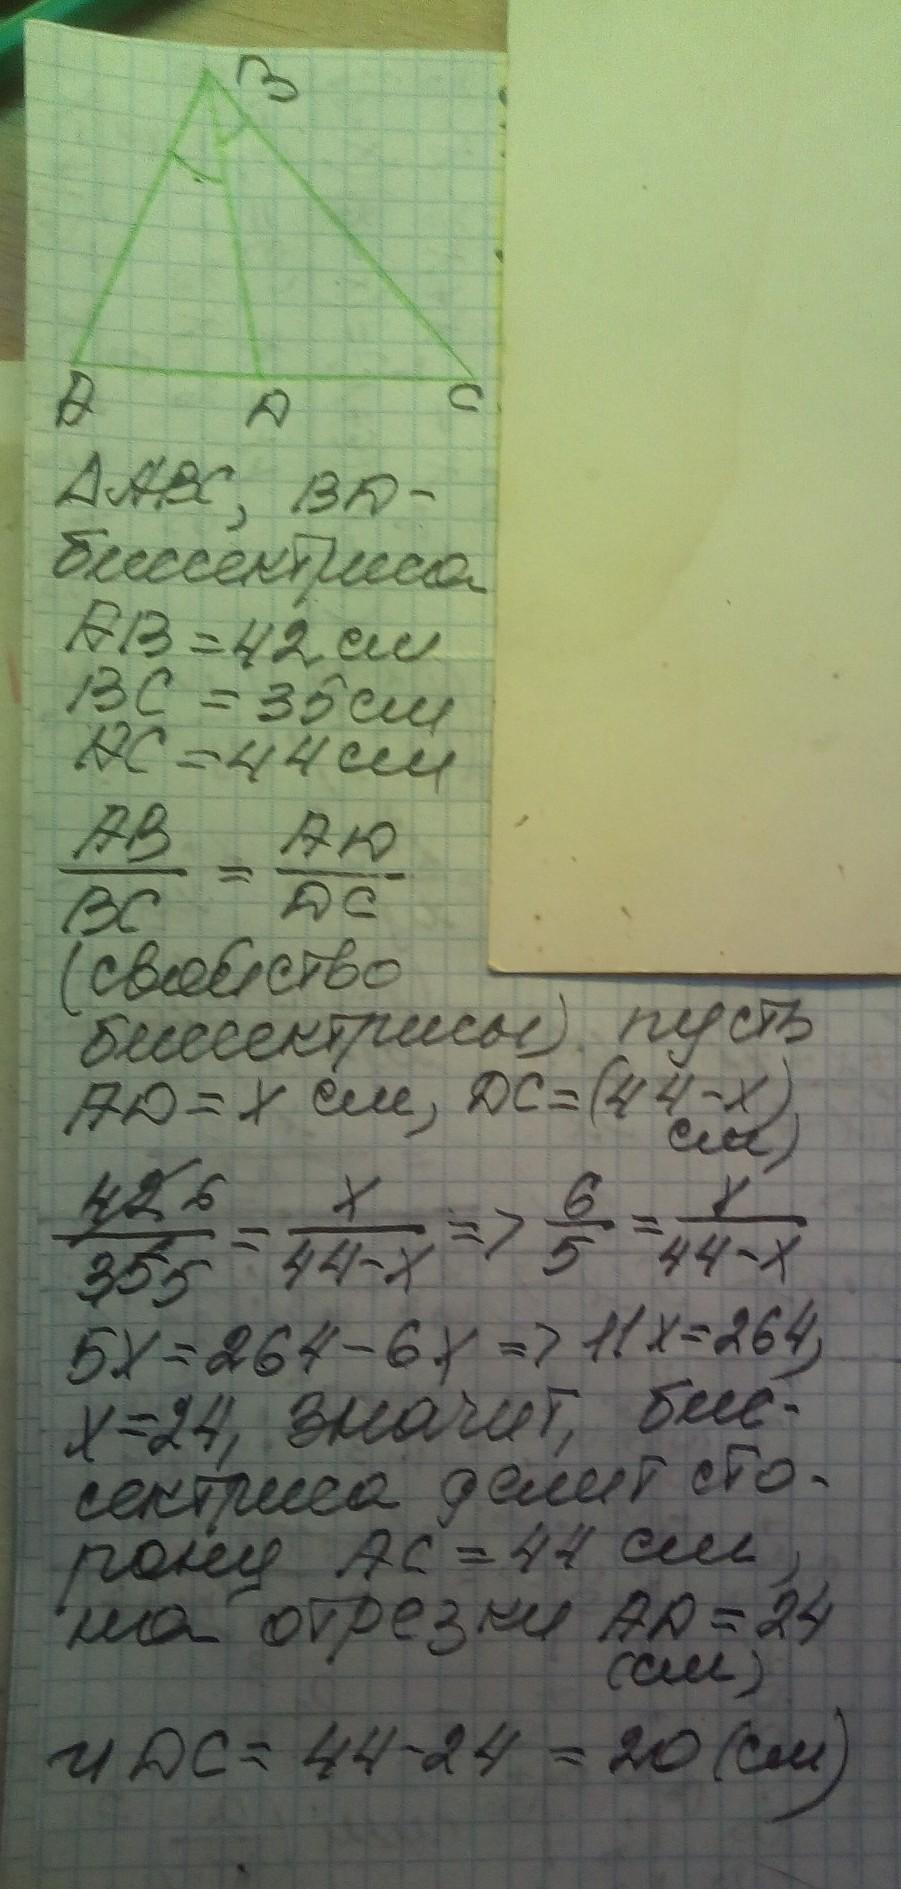 B
A D C
ΔABC, BD-
биссектриса
AB = 42 см
BC = 35 см
AC = 44 см
AB/BC = AD/DC
(свойство
биссектрисы) пусть
AD = x см, DC = (44-x)
см)
42 6/35 5 = x/44-x => 6/5 = x/44-x
5x = 264 - 6x => 11x = 264,
x = 24, значит, бис-
сектриса делит сто-
рону AC = 44 см,
на отрезки AD = 24
(см)
и DC = 44 - 24 = 20 (см)